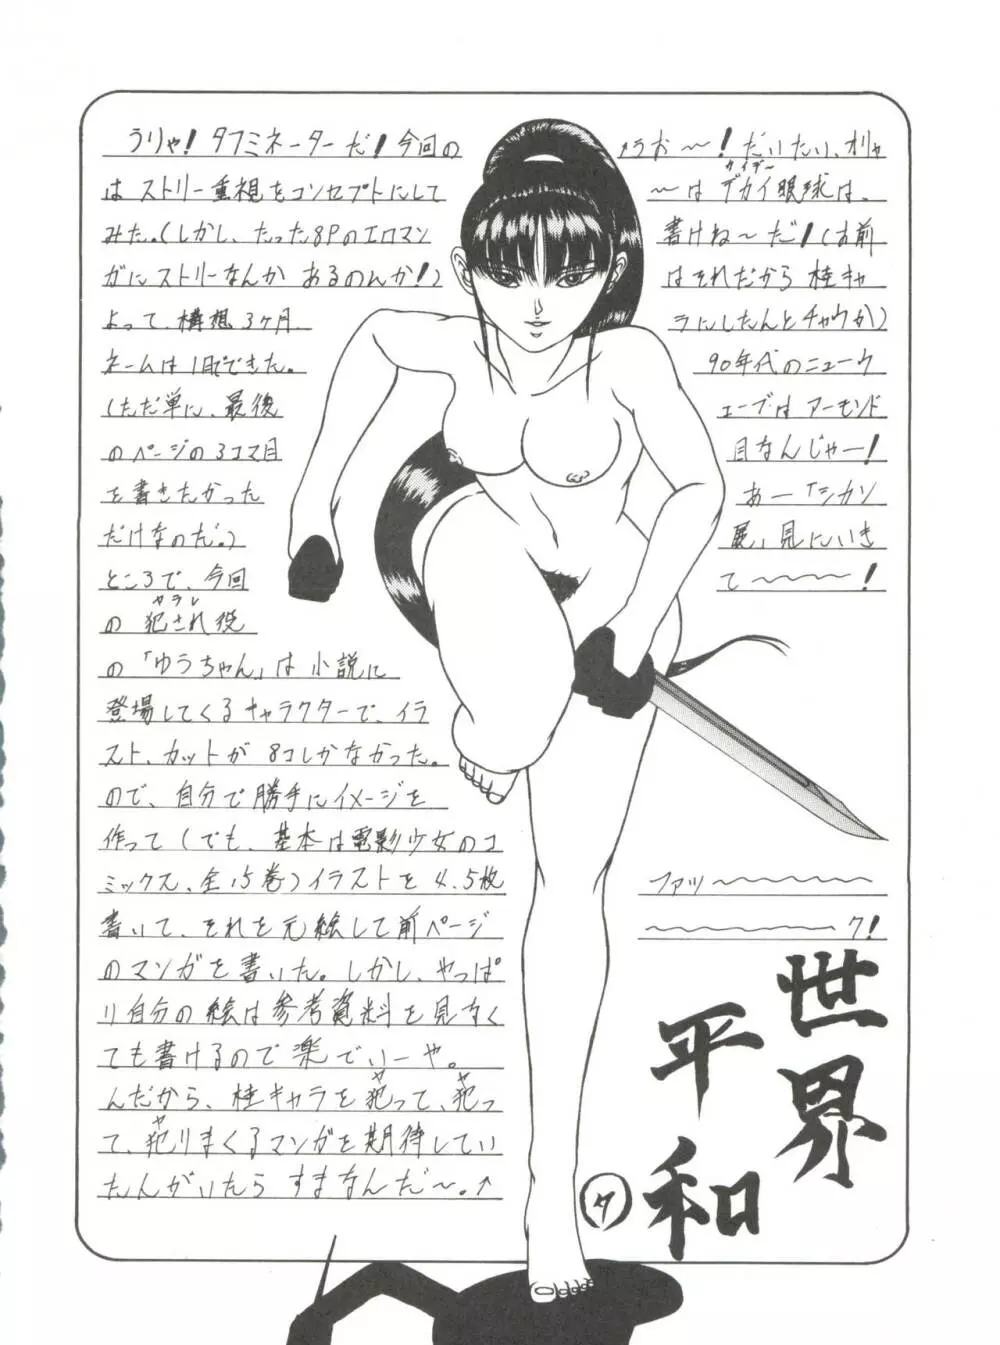 うりゃ!タフミネーターだ!今回の
はストリー重視をコンセプトにして
みた。(しかし、たった8Pのエロマン
ガにストリーなんか あるのんか!)
よって、構想3ケ月、
ネームは1日でできた。
(ただ単に、最後
のページの3コマ目
を書きたかった
だけなのだ。)
ところで、今回
の犯され役
ヤラレ
の「ゆうちゃん」は小説に
登場してくるキャラクターで、イラ
スト、カットが8コしかなかった。
ので、自分で勝手にイメージを
作って(でも、基本は電影少女のコ
ミックス、全15巻)イラストを4.5枚
書いて、それを元絵して前ページ
のマンガを書いた。しかし、やっぱ
り自分の絵は参考資料を見なく
ても書けるので楽でいーや。
んだから、桂キャラを犯って、犯っ
ヤ ヤ
て、犯りまくるマンガを期待してい
ヤ
たんがいたら すまなんだ〜。↑
うお〜!だいたい、オリャ
〜はデカイ眼球は、
カイデー
書けね〜だ!(お前
はそれだから桂キャ
ラにしたんとチャウか)
90年代のニューウ
ェーブはアーモンド
目なんじゃー!
あー「シカソ
展」見にいき
て〜〜〜〜!
ファッ〜〜〜〜〜〜
〜〜〜〜〜〜〜ク!
世界
平和
タ